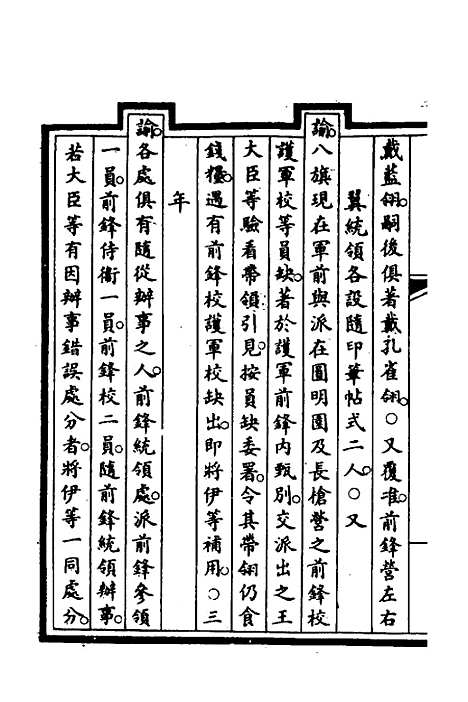 戴藍翎。嗣後俱著戴孔雀翎。○又覆准。前鋒營左右
翼統領各設隨印筆帖式二人。○又
諭。八旗現在軍前與派在圓明園及長槍營之前鋒校
護軍校等員缺。著於護軍前鋒內甄別。交派出之王
大臣等驗看帶領引見。按員缺委署。令其帶翎仍食
錢糧。遇有前鋒校護軍校缺出。即將伊等補用。○三
年
諭。各處俱有隨從辦事之人。前鋒統領處。派前鋒參領
一員。前鋒侍衛一員。前鋒校二員。隨前鋒統領辦事。
若大臣等有因辦事錯誤處分者。將伊等一同處分。